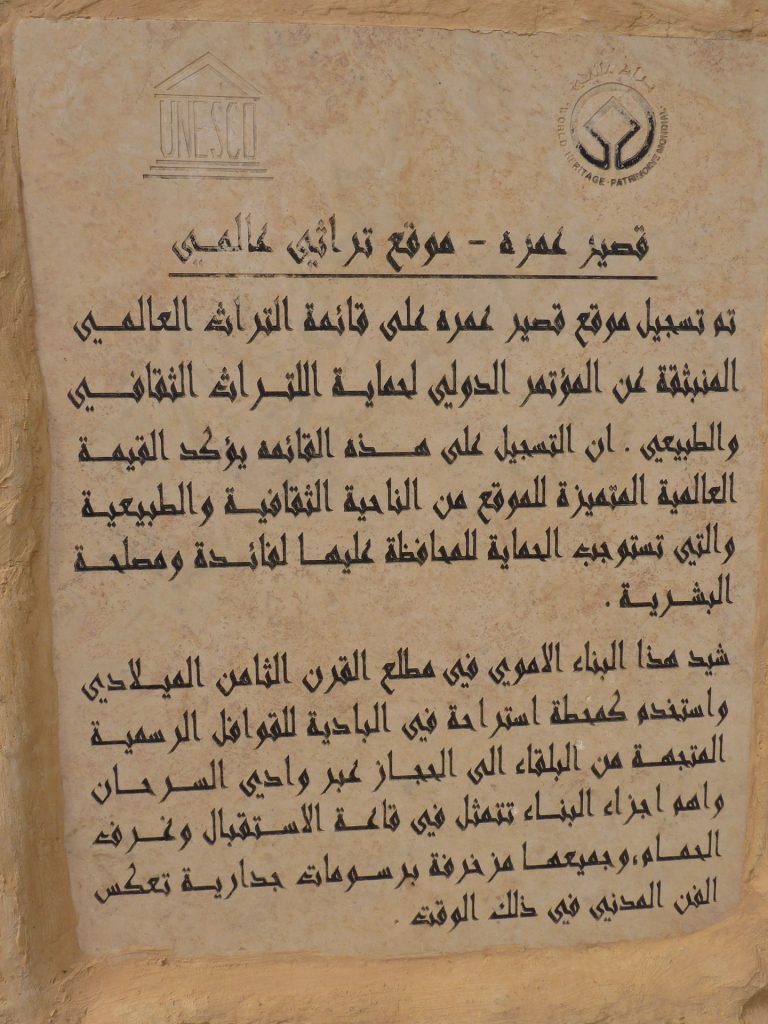 UNESCO
تراث عالمي
WORLD HERITAGE · PATRIMOINE MONDIAL
قصير عمره - موقع تراثي عالمي
تم تسجيل موقع قصير عمره على قائمة التراث العالمي
المنبثقة عن المؤتمر الدولي لحماية اللتراث الثقافي
والطبيعي . ان التسجيل على هذه القائمه يؤكد القيمة
العالمية المتميزة للموقع من الناحية الثقافية والطبيعية
والتي تستوجب الحماية للمحافظة عليها لفائدة ومصلحة
البشرية .
شيد هذا البناء الاموي في مطلع القرن الثامن الميلادي
واستخدم كمحطة استراحة في البادية للقوافل الرسمية
المتجهة من البلقاء الى الحجاز عبر وادي السرحان
واهم اجزاء البناء تتمثل في قاعة الاستقبال وغرف
الحمام،وجميعها مزخرفة برسومات جدارية تعكس
الفن المدني في ذلك الوقت .